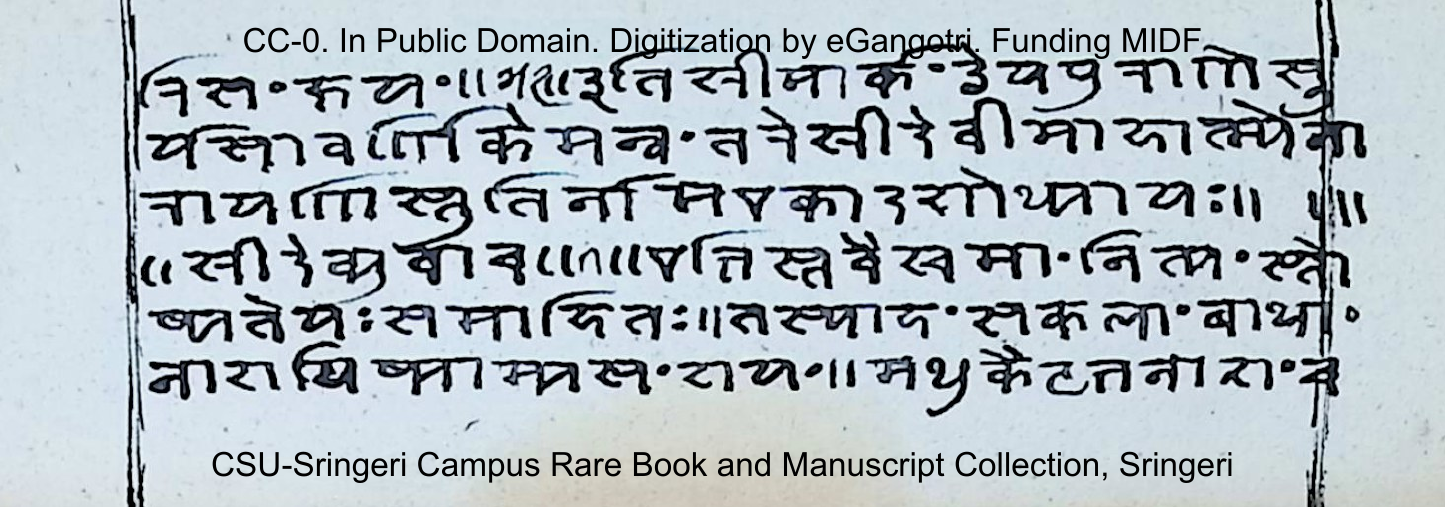 CC-0. In Public Domain. Digitization by eGangotri. Funding MIDF
रिसंक्षयं॥५५॥इति स्रीमार्कंडेयपुराणे सू
र्यसावर्णिके मन्वंतरे स्रीदेवीमाहात्म्ये ना
रायणिस्तुतिर्नामएकादशोध्यायः॥ ॥
॥स्रीदेव्युवाच॥१॥एभि स्तवैस्च मां नित्यं स्तो
ष्यते यः समाहितः॥तस्याहं सकलां बाधां
नाशयिष्याम्यसंशयं॥मधुकैटभनाशं च
CSU-Sringeri Campus Rare Book and Manuscript Collection, Sringeri